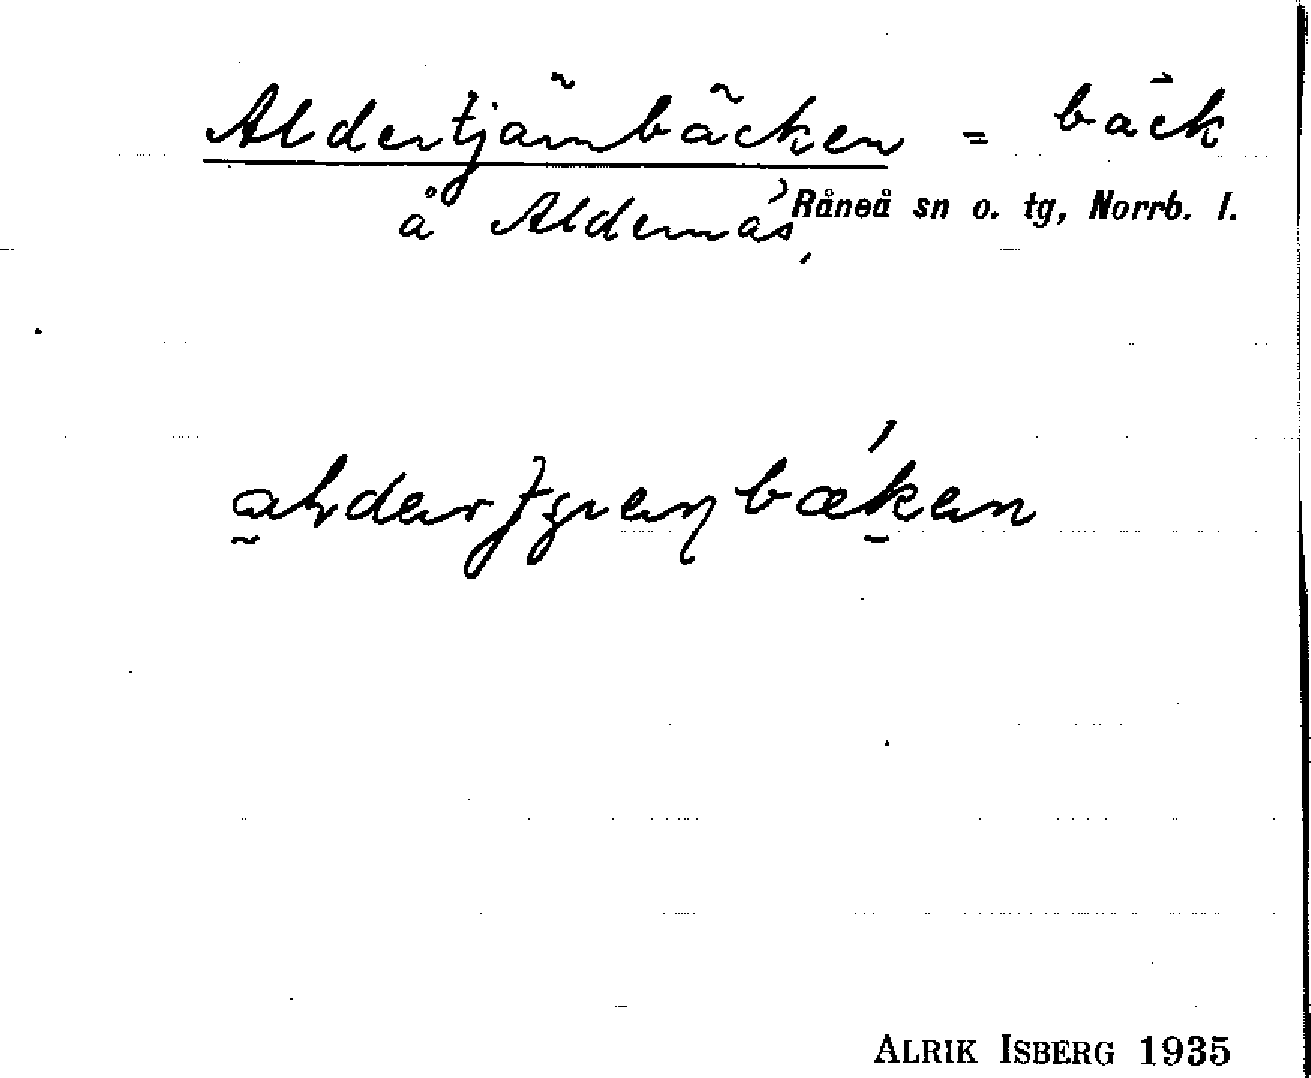 Aldertjärnbäcken = bäck
å Aldernäs, Råneå sn o. tg, Norrb. l.
ALRIK ISBERG 1935